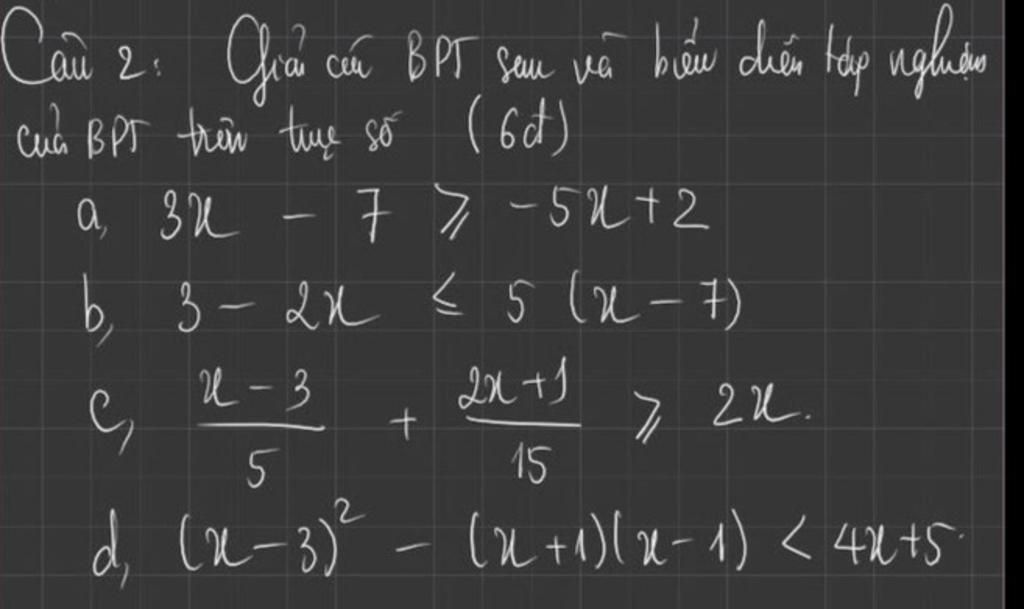 Câu 2: Giải các BPT sau và biểu diễn tập nghiệm
của BPT trên trục số (6đ)
a, 3x - 7 ⩾ -5x + 2
b, 3 - 2x ≤ 5 (x - 7)
c, (x - 3)/5 + (2x + 1)/15 ⩾ 2x.
d, (x - 3)² - (x + 1)(x - 1) < 4x + 5.